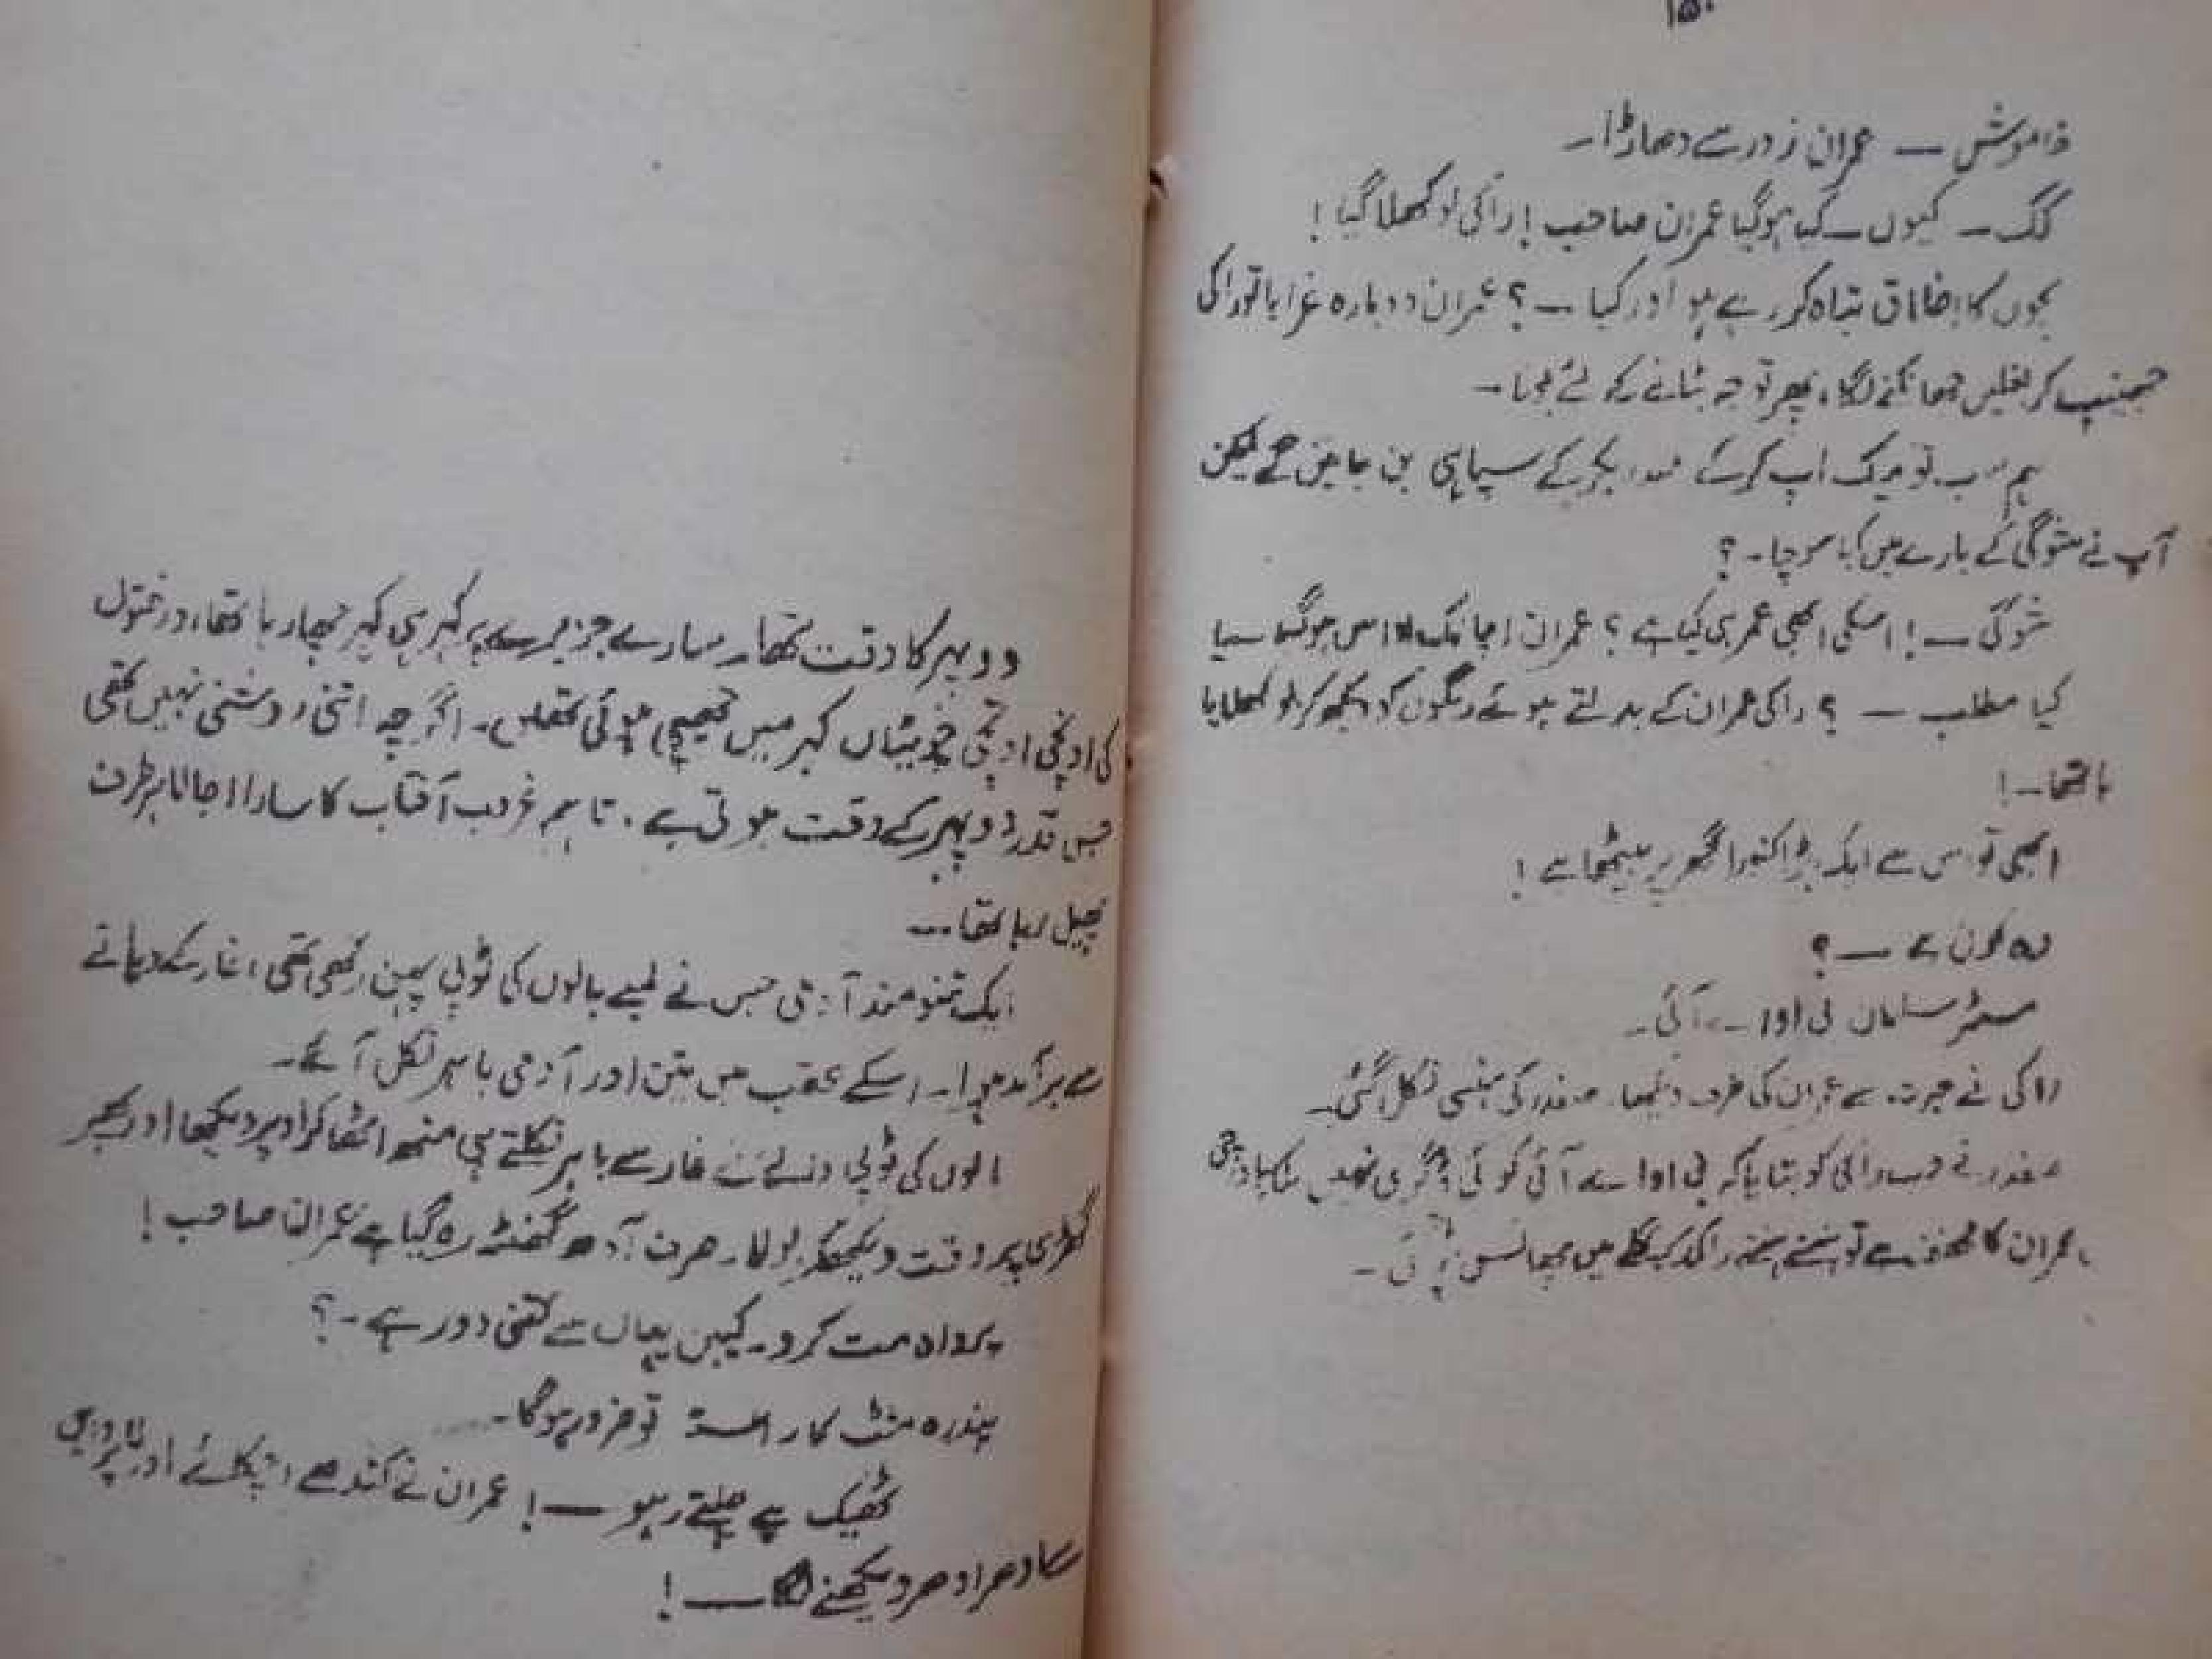 ۱۵۰
خاموش — عمران زور سے دھاڑا۔
گگ — کیوں — کیا ہوگیا عمران صاحب! راکی بوکھلا گیا!
بچوں کا اخلاق تباہ کر رہے ہو اور کیا — ؟ عمران دوبارہ غرایا تو راکی
جھینپ کر بغلیں جھانکنے لگا، پھر توجہ ہٹانے کو لئے بولا۔
ہم سب تو میک اپ کر کے کے سپاہی بن جائیں گے لیکن
آپ نے شوگی کے بارے میں کیا سوچا۔؟
شوگی — ! اسکی ابھی عمر ہی کیا ہے ؟ عمران اچانک اداس ہوگیا
کیا مطلب — ؟ راکی عمران کے بدلتے ہوئے رنگوں کو دیکھ کر بوکھلایا
تھا۔!
ابھی تو اس سے ایک بڑا کنوارا گھر پر بیٹھا ہے !
وہ کون ہے — ؟
مسٹر سلمان بی اوا۔ے۔آئی۔
راکی نے حیرت سے عمران کی طرف دیکھا۔ صفدر کی ہنسی نکل گئی۔
صفدر نے جب راکی کو بتایا کہ بی اوا سے آئی کوئی ڈگری نہیں
عمران کا ہے تو ہنستے ہنستے راکی کے گلے میں پھانس پڑ گئی۔
دوپہر کا وقت تھا۔ سارے جزیرے پر کہر ہی کہر چھا رہا تھا، درختوں
کی اونچی اونچی چوٹیاں کہر میں چھپی ہوئی تھیں۔ اگرچہ اتنی روشنی نہیں تھی
جس قدر دوپہر کے وقت ہوتی ہے۔ تاہم غروب آفتاب کا سارا اجالا ہر طرف
پھیل رہا تھا۔۔
ایک تنومند آدمی جس نے لمبے بالوں کی ٹوپی پہن رکھی تھی، غار کے دہانے
سے برآمد ہوا۔ اسکے عقب میں تین اور آدمی باہر نکل آئے۔
بالوں کی ٹوپی والے نے غار سے باہر نکلتے ہی منھ اٹھا کر اوپر دیکھا اور پھر
گھڑی پر وقت دیکھکر بولا۔ صرف آدھ گھنٹہ رہ گیا ہے عمران صاحب!
پرواہ مت کرو۔ کیبن یہاں سے کتنی دور ہے۔؟
پندرہ منٹ کا راستہ تو ضرور ہوگا۔
ٹھیک ہے چلتے رہو — ! عمران نے کندھے اچکائے اور
ادھر ادھر دیکھنے لگا — !